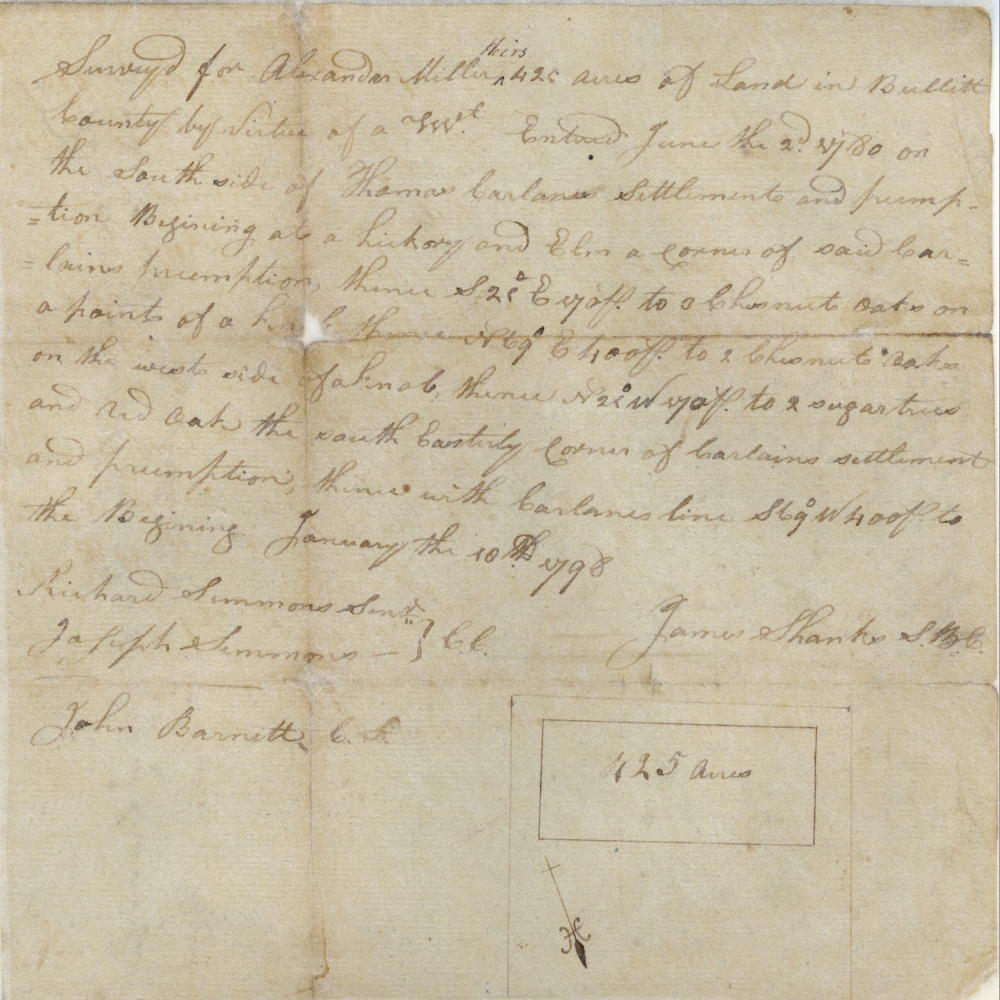 Heirs
Surveyd for Alexander Miller ^ 425 acres of Land in Bullitt
County by Virtue of a Wt. Entred June the 2d. 1780 on
the South side of Thomas Carlanes Settlement and preemp-
=tion Begining at a hickory and Elm a corner of said Car=
=lains preemption, thence S 25° E 170 po. to 3 Chesnut oaks on
a point of a knob thence N 69° E 400 po. to 2 Chesnut oaks
on the west side of a knob, thence N 25° W 170 po. to 2 sugartrees
and red oak the south Easterly corner of Carlains settlement
and preemption, thence with Carlanes line S 69° W 400 po to
the Begining January the 18th 1798
Richard Simmons Senr.
Joseph Simmons — } C.C.
James Shanks S.B.C.
John Barnett C.
425 Acres